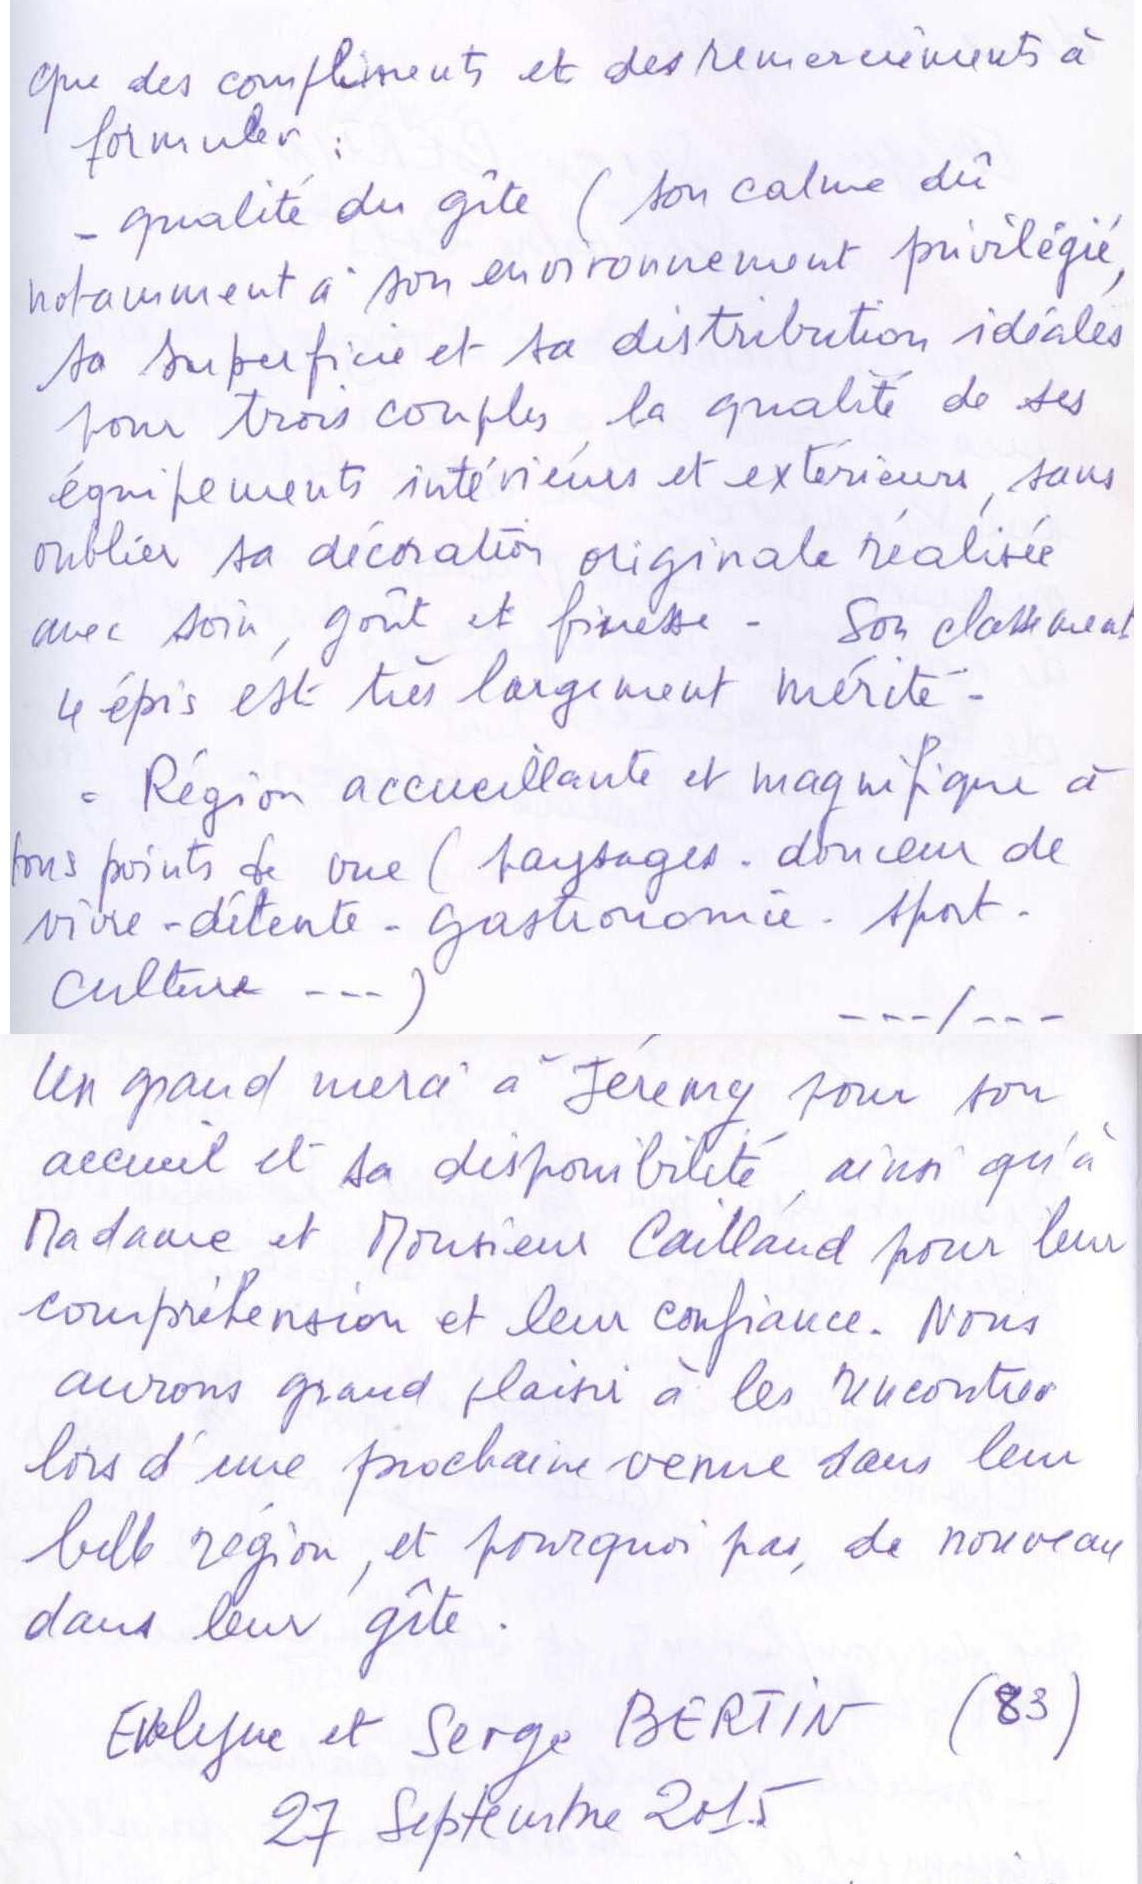 Que des compliments et des remerciements à
formuler :
- qualité du gîte ( son calme dû
notamment à son environnement privilégié,
sa superficie et sa distribution idéales
pour trois couples, la qualité de ses
équipements intérieurs et extérieurs, sans
oublier sa décoration originale réalisée
avec soin, goût et finesse - Son classement
4 épis est très largement mérité -
- Région accueillante et magnifique à
tous points de vue ( paysages - douceur de
vivre - détente - gastronomie - sport -
culture --- )
---/---
Un grand merci à Jérémy pour son
accueil et sa disponibilité, ainsi qu'à
Madame et Monsieur Caillaud pour leur
compréhension et leur confiance. Nous
aurons grand plaisir à les rencontrer
lors d'une prochaine venue dans leur
belle région, et pourquoi pas, de nouveau
dans leur gîte.
Evelyne et Serge BERTIN (83)
27 Septembre 2015